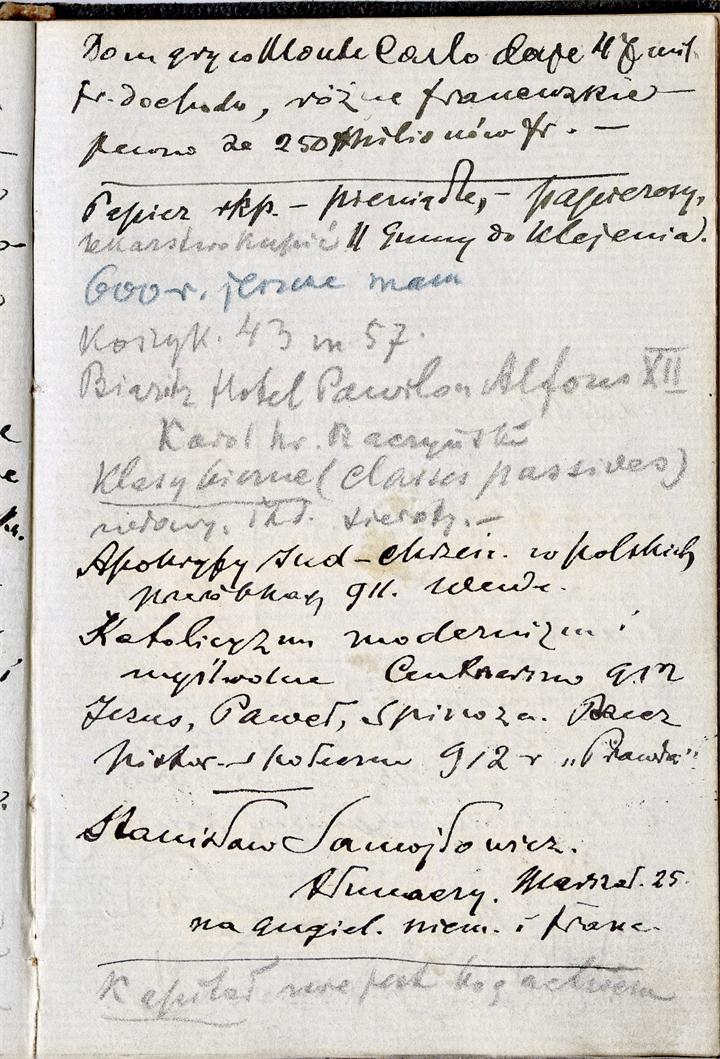 Dom gry w Monte Carlo daje 47 mil.
fr. dochodu, różne francuzkie —
pewno ze 250 milionów fr. —
Papier rkp. — pieniądze, — papierosy,
lekarstwo kupić || Gumy do klejenia.
600 r. jeszcze mam
Koszyk. 43 m 57.
Biaritz Hotel Pawilon Alfons XII
Karol hr. Raczyński
Klasy bierne (classes passives)
wdowy, itd. sieroty. —
Apokryfy jud-chrześc. w polskich
przeróbkach 911. Wende.
Katolicyzm modernizm i
myśl wolna Centnerszwo 912
Jezus, Paweł, Spinoza. Rzecz
histor.-społeczna 912 r „Prawda"
Stanisław Samojłowicz.
tłumaczy. Marszał. 25.
na angiel. niem. i franc.
Kapitał nie jest bogactwem